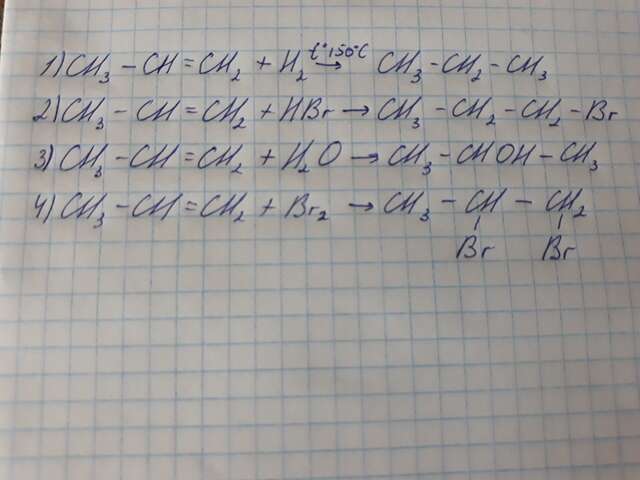 1) CH₃ – CH = CH₂ + H₂ t° 150°C → CH₃ – CH₂ – CH₃
2) CH₃ – CH = CH₂ + HBr → CH₃ – CH₂ – CH₂ – Br
3) CH₃ – CH = CH₂ + H₂O → CH₃ – CHOH – CH₃
4) CH₃ – CH = CH₂ + Br₂ → CH₃ – CH – CH₂
Br Br